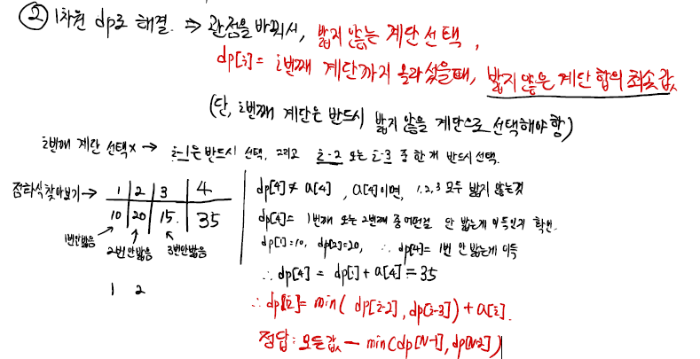 ② 1차원 dp로 해결. ⇒ 관점을 바꿔서, 밟지 않는 계단 선택,
dp[i] = i번째 계단까지 올라 섰을때, 밟지 않은 계단 합의 최솟값
(단, i번째 계단은 반드시 밟지 않을 계단으로 선택해야 함)
i번째 계단 선택x → i-1은 반드시 선택, 그리고 i-2 또는 i-3 중 한 개 반드시 선택.
점화식 찾아보기 → 1 2 3 4
10 20 15 35
1번 안 밟음 2번 안 밟음 3번 안 밟음
1 2
dp[4] ≠ a[4], a[4]이면, 1, 2, 3 모두 밟지 않는것
dp[4] = 1번째 또는 2번째 중 어떤걸 안 밟는게 이득인지 확인.
dp[1]=10, dp[2]=20, ∴ dp[4] = 1번 안 밟는게 이득
∴ dp[4] = dp[1] + a[4] = 35
∴ dp[i] = min( dp[i-2], dp[i-3]) + a[i].
정답 : 모든 값 - min(dp[N-1], dp[N-2])